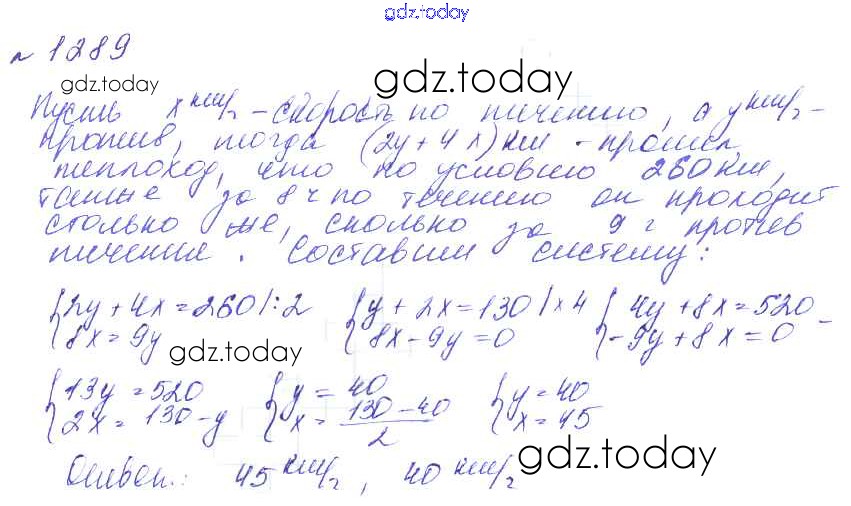 gdz.today
№ 1289
gdz.today
gdz.today
Пусть x км/ч - скорость по течению, а y км/ч -
против, тогда (2y + 4x) км - прошел
теплоход, что по условию 260 км,
также за 8 ч по течению он проходит
столько же, сколько за 9 ч против
течения. Составим систему:
{2y + 4x = 260 |:2 {y + 2x = 130 | x 4 {4y + 8x = 520 -
{8x = 9y {8x - 9y = 0 {-9y + 8x = 0
gdz.today
{13y = 520 {y = 40 {y = 40
{2x = 130 - y {x = (130 - 40)/2 {x = 45
Ответ: 45 км/ч, 40 км/ч
gdz.today